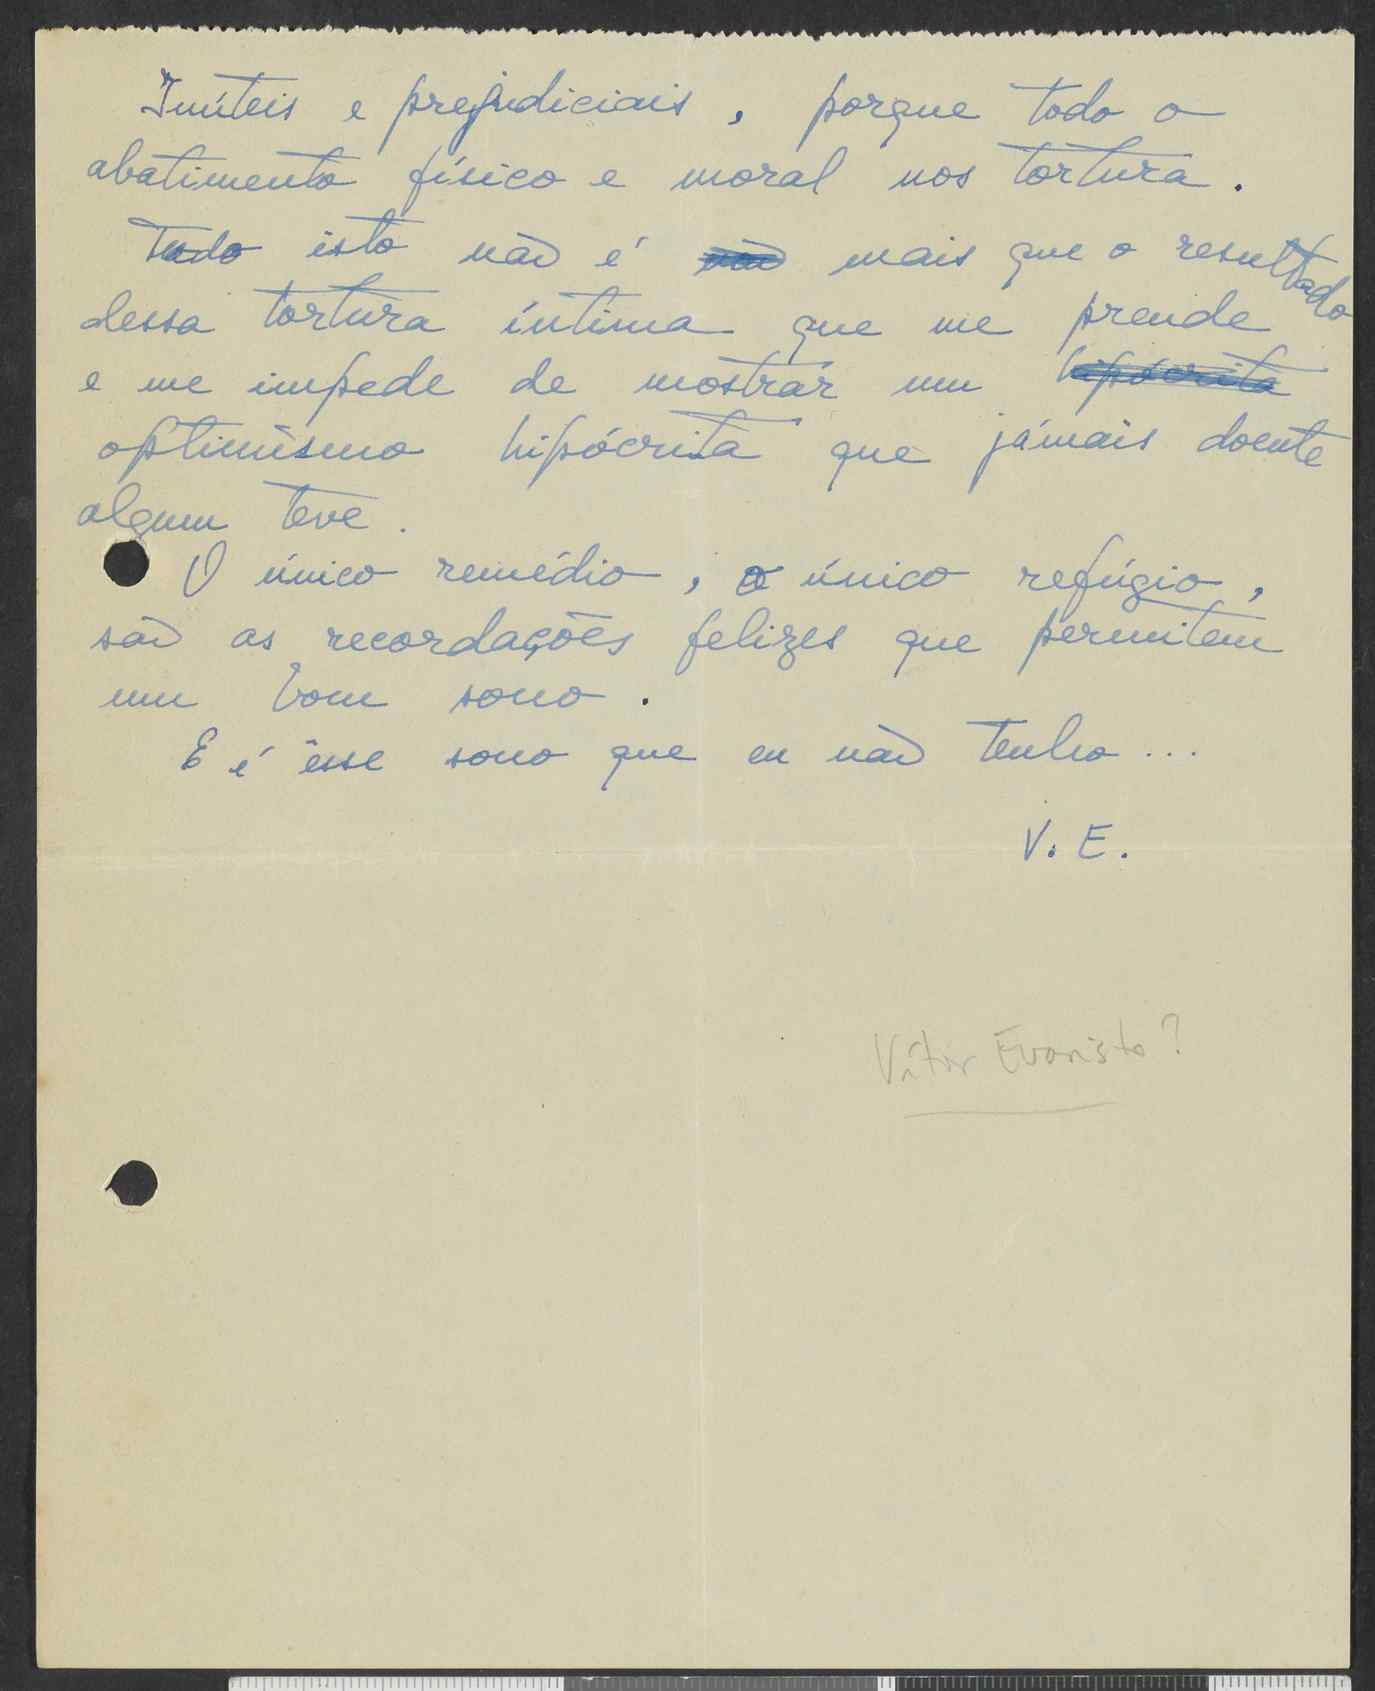 Inúteis e prejudiciais, porque todo o
abatimento físico e moral nos tortura.
Tudo isto não é não mais que o resultado
dessa tortura íntima que me prende
e me impede de mostrar um hipócrita
optimismo hipócrita que jámais doente
algum teve.
O único remédio, o único refúgio,
são as recordações felizes que permitem
um bom sono.
E é êsse sono que eu não tenho...
V. E.
Vítor Evaristo?